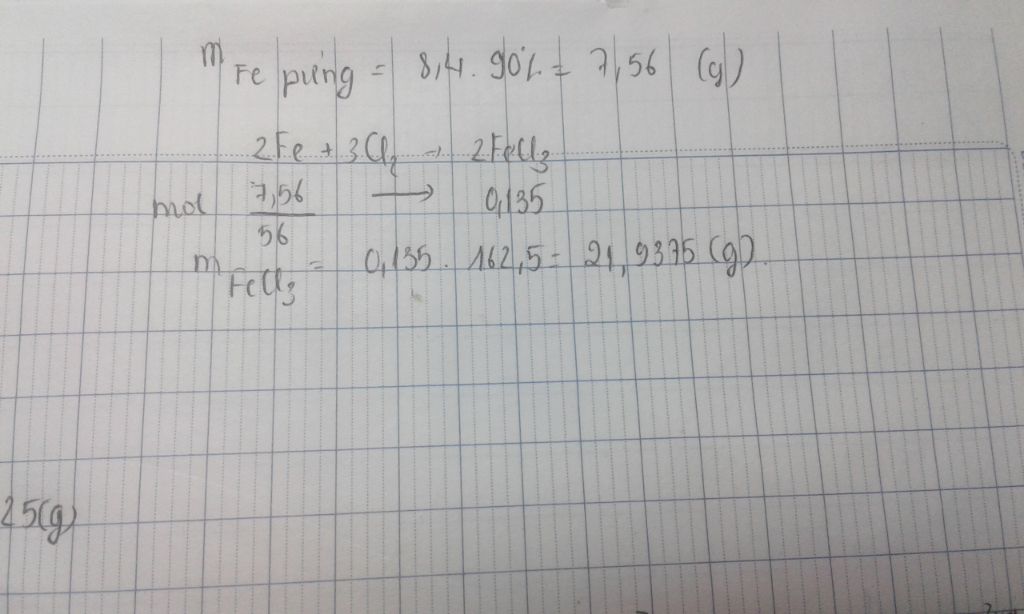 m Fe pứng = 8,4. 90% = 7,56 (g)
2Fe + 3Cl2 → 2FeCl3
mol 7,56/56 → 0,135
m FeCl3 = 0,135. 162,5 = 21,9375 (g).
25(g)